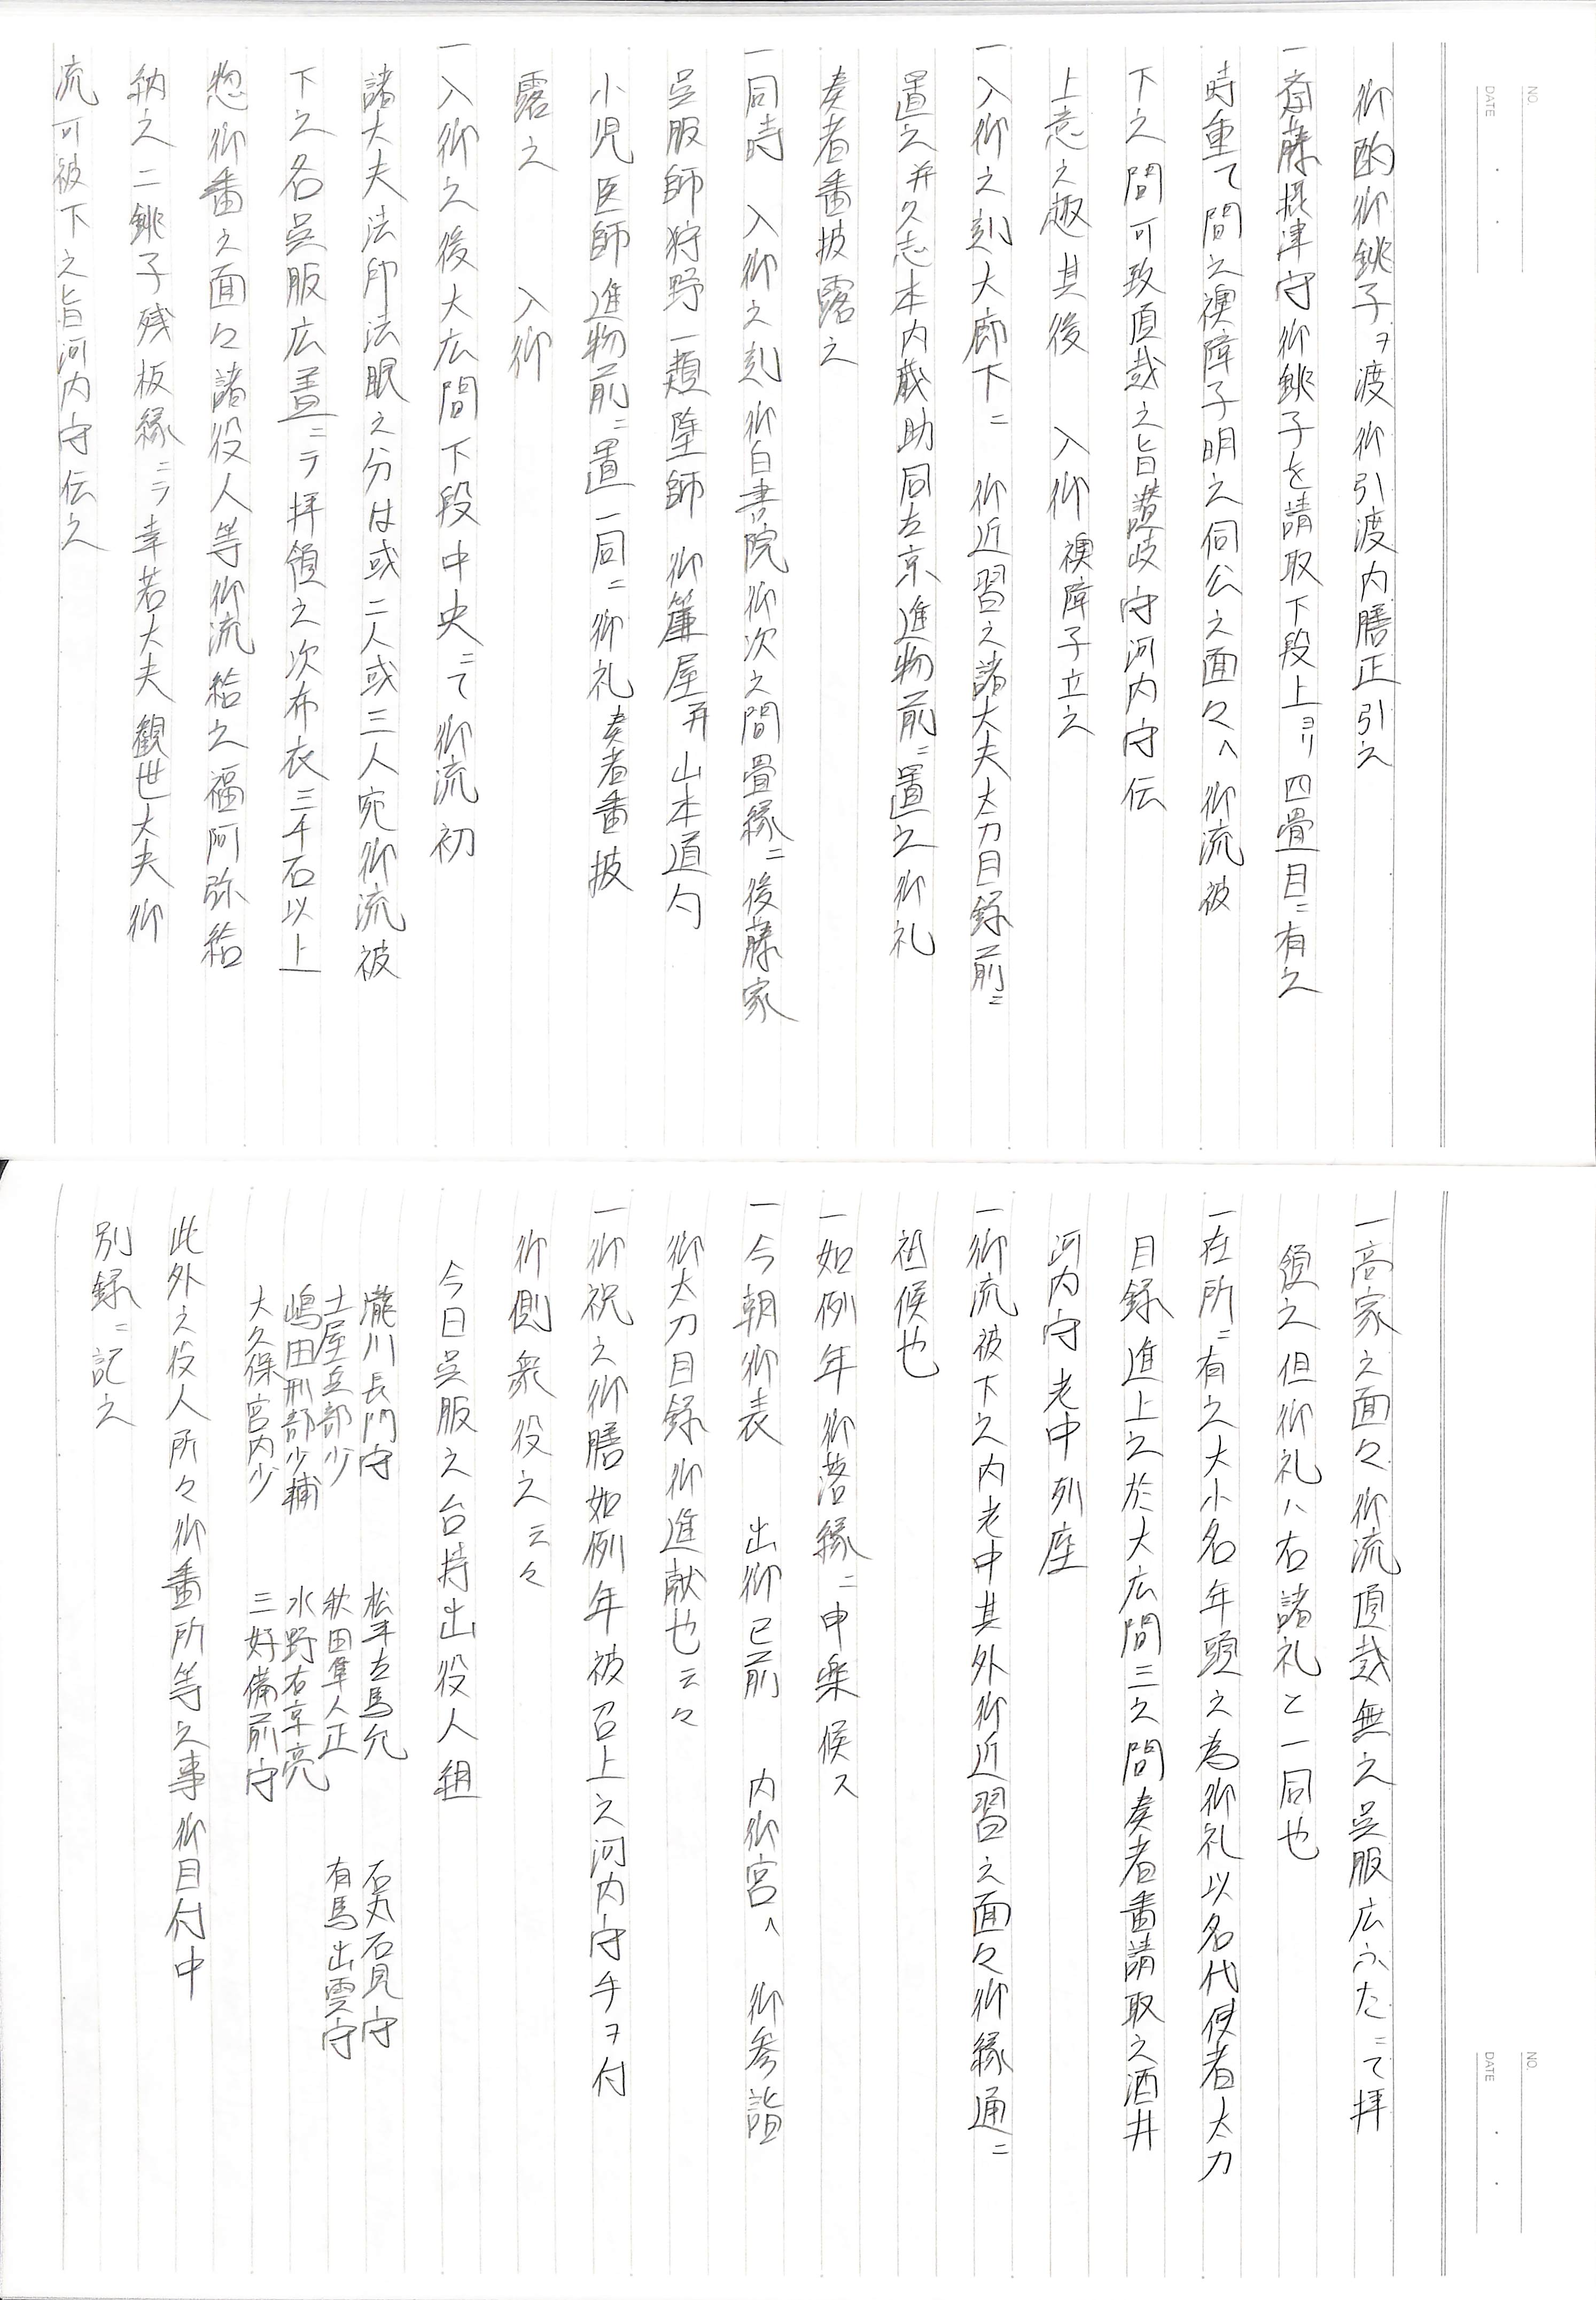 NO.
DATE
御酌御銚子ヲ渡御引渡内膳正引之
一斎藤摂津守御銚子を請取下段上ヨリ四畳目ニ有之
時重て間之襖障子明之伺公之面々へ御流被
下之間可致頂戴之旨讃岐守河内守伝
上意之趣其後　入御襖障子立之
一入御之刻大廊下ニ　御近習之諸大夫太刀目録前ニ
置之并久志本内蔵助同左京進物前ニ置之御礼
奏者番披露之
一同時　入御之刻御白書院御次之間畳縁ニ後藤家
呉服師狩野一類塗師　御簾屋并山本道勺
小児医師進物前ニ置一同ニ御礼奏者番披
露之　　入御
一入御之後大広間下段中央ニて御流初
諸大夫法印法眼之分は或二人或三人宛御流被
下之名呉服広蓋ニテ拝領之次布衣三千石以上
惣御番之面々諸役人等御流給之福阿弥給
納之二銚子残板縁ニテ幸若大夫観世大夫御
流可被下之旨河内守伝之
NO.
DATE
一高家之面々御流頂戴無之呉服広ふたニて拝
領之但御礼ハ右諸礼と一同也
一在所ニ有之大小名年頭之為御礼以名代使者太刀
目録進上之於大広間三之間奏者番請取之酒井
河内守老中列座
一御流被下之内老中其外御近習之面々御縁通ニ
祗候也
一如例年御落縁ニ申楽候ス
一今朝御表　出御已前　内御宮へ　御参詣
御太刀目録御進献也云々
一御祝之御膳如例年被召上之河内守手ヲ付
御側衆役之云々
今日呉服之台持出役人組
瀧川長門守　松平左馬允　石丸石見守
土屋兵部少　秋田隼人正　有馬出雲守
嶋田刑部少輔　水野右京亮
大久保宮内少　三好備前守
此外之役人所々御番所等之事御目付中
別録ニ記之